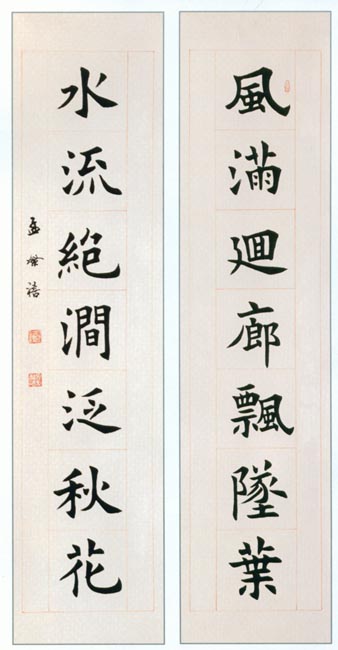 風滿迴廊飄墜葉
水流絕澗泛秋花